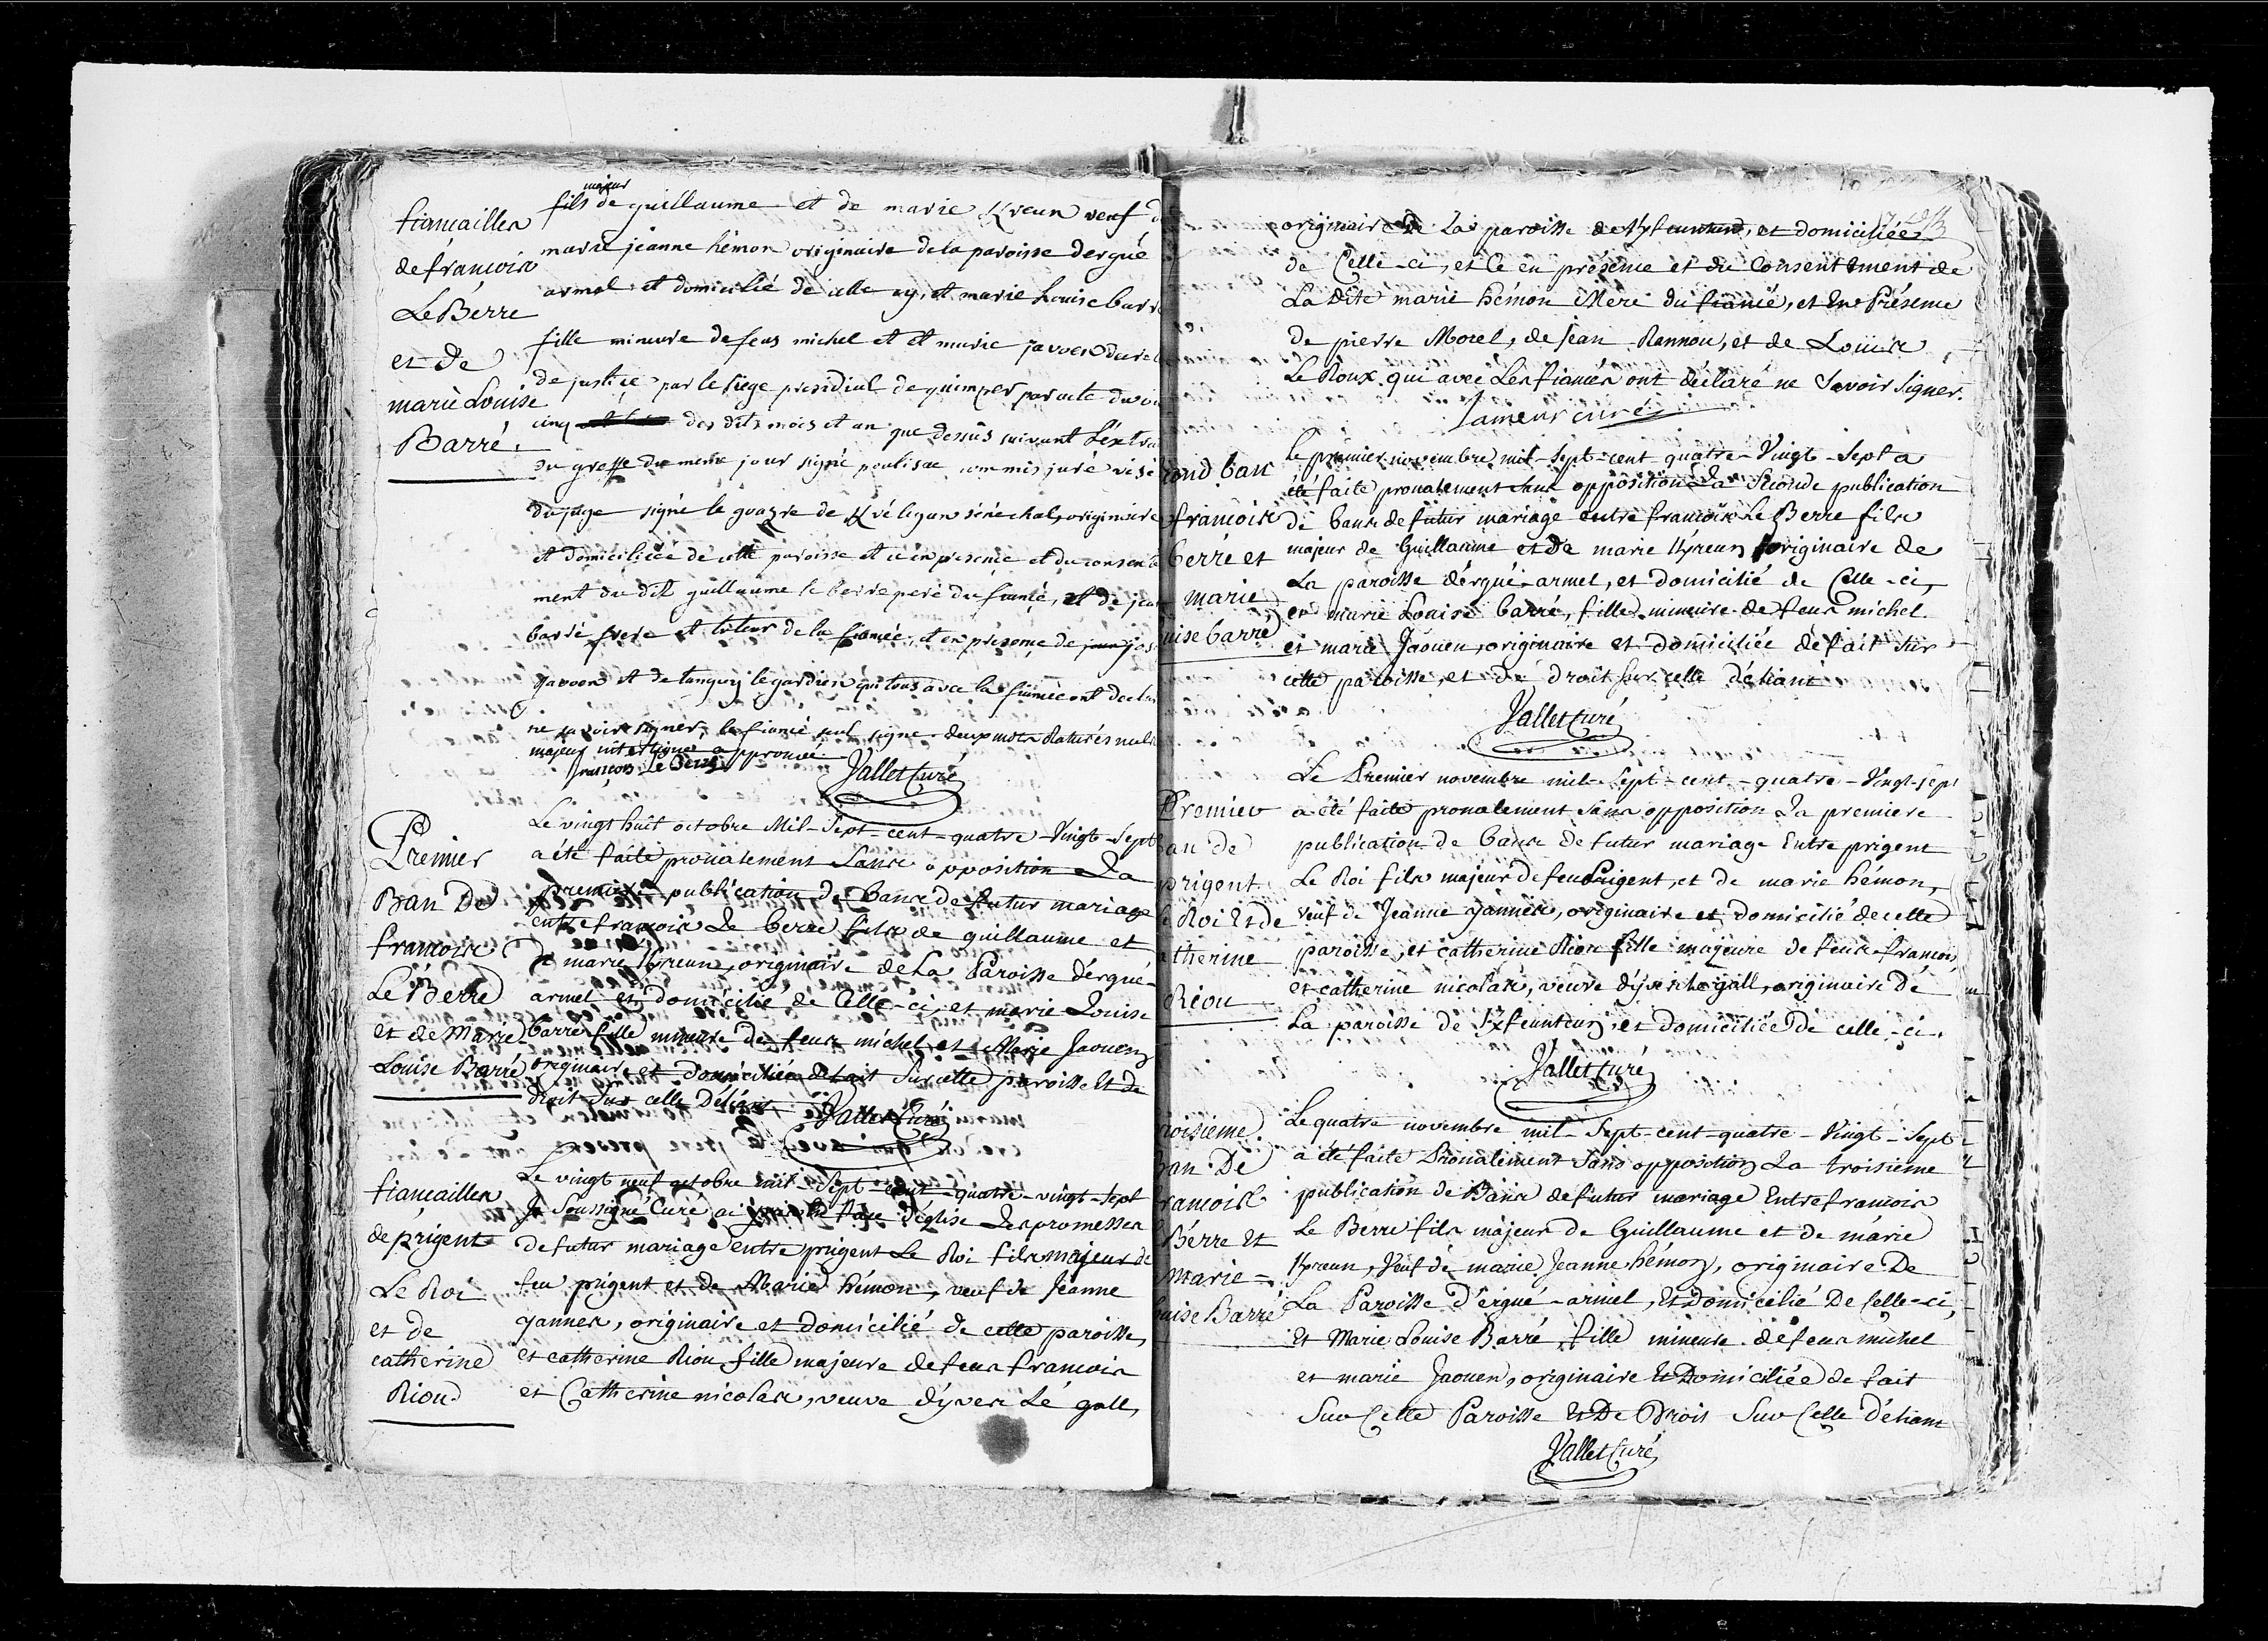 fiancailles
de francois
Le Berre
et de
marie Louise
Barré.
majeur
fils de guillaume et de marie Kreun veuf d
marie jeanne hémon originaire de la paroisse dergué
armel et domicilié de celle cy, et marie Louise barr
fille mineure de feus michel et et marie javoen
de justice par le siege presidial de quimper par acte du
cinq des dits mois et an que dessus suivant L'extra
du greffe du meme jour signé poulisac commis juré visé
du juge signé le goazre de Kvélegan sénéchal, originaire
et domiciliée de cette paroisse et ce en presence et du consente
ment du dit guillaume le berre pere du fiancé, et de jean
barré frere et tuteur de la fiancée, et en présence de jos
javoen et de tanguy le gardien qui tous avec la fiancée ont declar
ne savoir signer, le fiancé seul signe. deux mots raturés nuls
majeur interligne approuvé
francois Le Berre
Vallet Curé
Premier
Ban De
francois
Le Berre
et de Marie
Louise Barré
Le vingt huit octobre Mil-Sept-cent-quatre-Vingt-Sept
a été faite pronalement Sans opposition La
premiere publication de bans de futur mariage
entre francois Le berre fils de guillaume et
de marie Kreun, originaire de La Paroisse d'ergué-
armel et domicilié de Celle-ci, et marie Louise
barré fille mineure de feus michel et Marie Jaouen
originaire et domiciliée de fait sur cette paroisse Et De
droit sur celle D'éliant
Vallet Curé
fiancailles
de prigent
Le Roi
et de
catherine
Riou
Le vingt neuf octobre mil-Sept-cent-quatre-vingt-sept
Je Soussigné Curé ai en face d'eglise Les promesses
de futur mariage entre prigent Le Roi fils majeur de
feu prigent et de Marie hémon, veuf de Jeanne
yannes, originaire et domicilié de cette paroisse,
et catherine Riou fille majeure de feus francois
et Catherine nicolas, veuve d'yves Le gall,
originaire de La paroisse de et domiciliée
de Celle-ci, et Ce en présence et du Consentement de
La dite marie hémon Mere du fiancé, et En Présence
de pierre Morel, de Jean Rannou, et de Louis
Le Roux qui avec Les fiancés ont déclaré ne Savoir Signer.
Lameur curé
cond ban
francois
berre et
marie
uise barré
Le premier novembre mil-Sept-cent quatre-Vingt-Sept a
été faite pronalement Sans opposition La Seconde publication
de bans de futur mariage entre francois Le Berre fils
majeur de Guillaume et De marie Kreun originaire de
La paroisse d'ergué-armel, et domicilié de Celle-ci,
et marie Louise barré, fille mineure de feus michel
et marie Jaouen, originaire et domiciliée de fait sur
cette paroisse, et de droit sur celle d'éliant
Vallet Curé
Premier
an de
prigent
Le Roi Et de
therine
Riou
Le Premier novembre mil-Sept-cent-quatre-Vingt-Sept
a été faite pronalement Sans opposition La premiere
publication de bans de futur mariage Entre prigent
Le Roi fils majeur de feu Prigent, et de marie hémon,
veuf de Jeanne yannes, originaire et domicilié de cette
paroisse, et catherine Riou fille majeure de feus francois
et catherine nicolas, veuve d'yves Le gall, originaire de
La paroisse de et domiciliée De celle-ci.
Vallet Curé
roisieme
an De
rancois
Berre Et
Marie
uise Barré
Le quatre novembre mil-Sept-cent-quatre-Vingt-Sept
a été faite Pronalement Sans opposition La troisieme
publication de Bans de futur mariage Entre francois
Le Berre fils majeur de Guillaume et de marie
Kreun, Veuf de marie Jeanne hémon, originaire De
La Paroisse D'ergué-armel, Et Domicilié De Celle-ci,
Et Marie Louise Barré, fille mineure de feus michel
et marie Jaouen, originaire Et Domiciliée de fait
Sur Cette Paroisse Et De Droit Sur Celle D'éliant
Vallet Curé